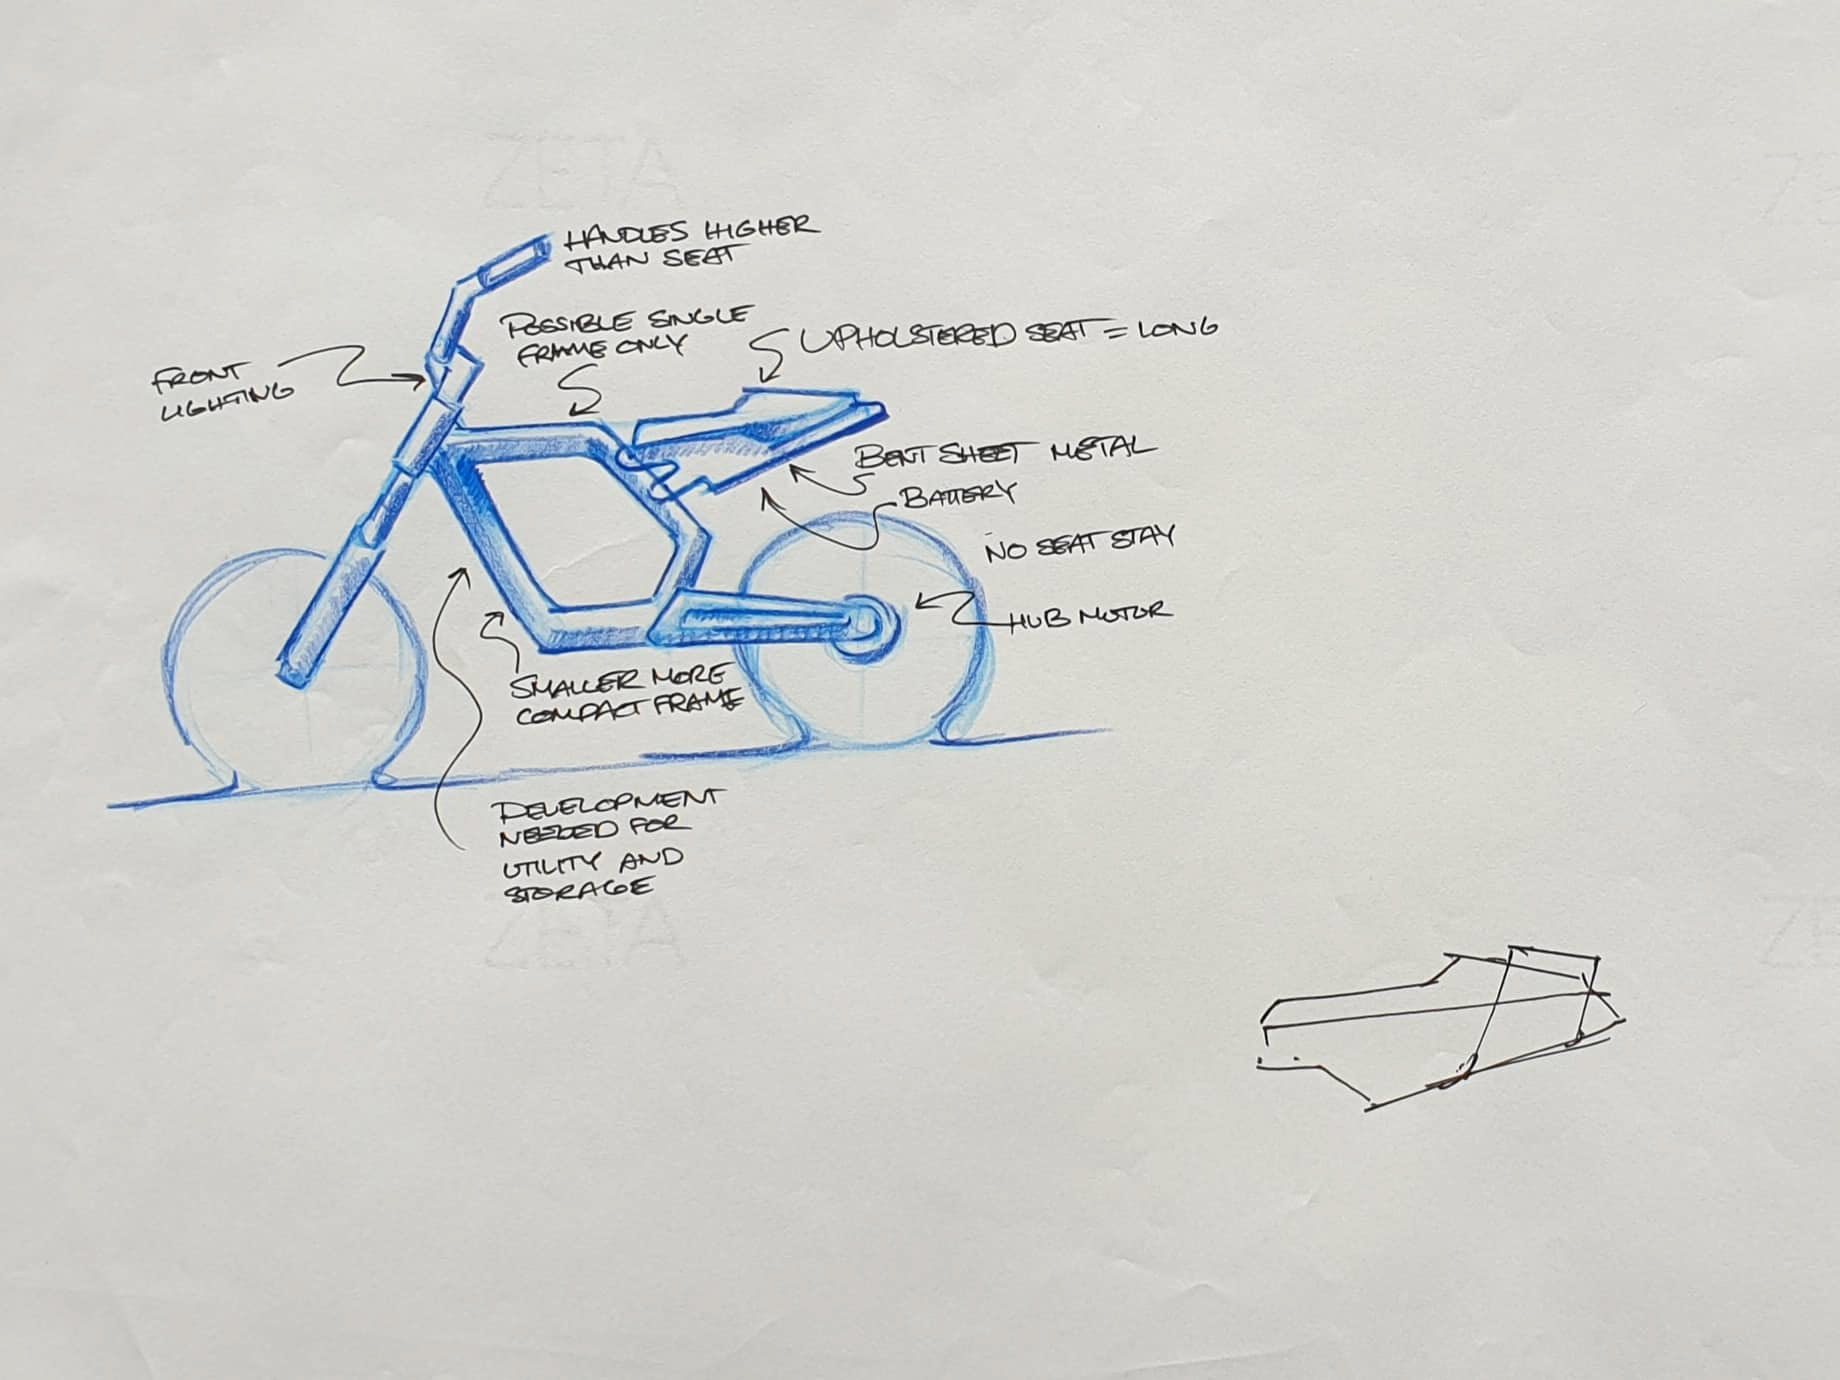 HANDLES HIGHER
THAN SEAT
POSSIBLE SINGLE
FRAME ONLY
UPHOLSTERED SEAT = LONG
FRONT
LIGHTING
BENT SHEET METAL
BATTERY
NO SEAT STAY
HUB MOTOR
SMALLER MORE
COMPACT FRAME
DEVELOPMENT
NEEDED FOR
UTILITY AND
STORAGE